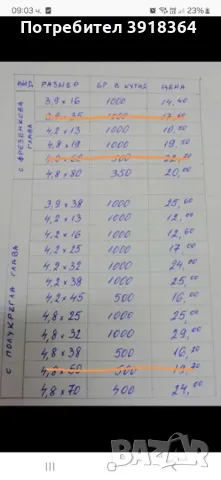 09:03 ч.
23%
Покупко-продажба 3918364
ВИД.
РАЗМЕР
БР. В КУТИЯ
ЦЕНА
С ФРЕЗЕНКОВА ГЛАВА
3,9 x 16 1000 14,40
3,9 x 25 1000
4,2 x 13 1000
4,8 x 19 1000 19,50
500
4,8 x 80 350 20,00
С ПОЛУКРЪГЛА ГЛАВА
3,9 x 38 1000 25,60
4,2 x 13 1000 12,00
4,2 x 16 1000 12,60
4,2 x 25 1000 17,00
4,2 x 32 1000 24,00
4,2 x 38 1000 25,00
4,2 x 45 500 16,00
4,8 x 25 1000 25,00
4,8 x 32 1000 29,00
4,8 x 38 500 16,20
4,8 x 50 500
4,8 x 70 400 24,00
bazar
БАЗАР